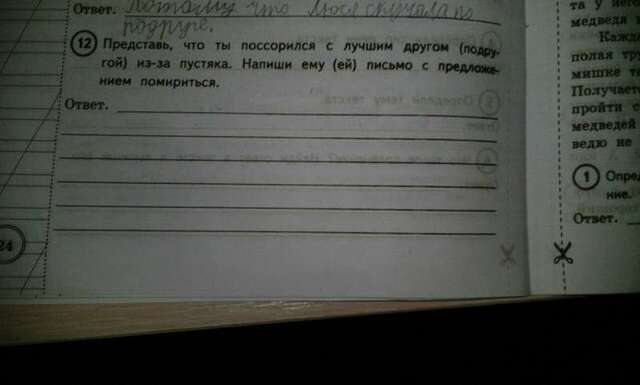 Ответ. Потому что Люся скучала по
подруге.
12 Представь, что ты поссорился с лучшим другом (подру-
гой) из-за пустяка. Напиши ему (ей) письмо с предложе-
нием помириться.
Ответ.
24
та у него
медведя
Кажд
полая тру
мишке т
Получает
пройти о
медведей
ведю не
1 Опред
ние.
Ответ.